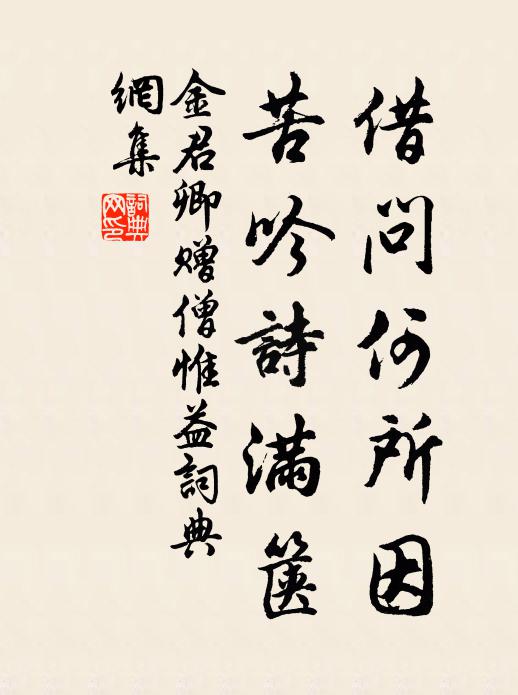 借問何所因
苦吟詩滿篋
金君卿贈僧惟益詞典
網集
詞典
网印